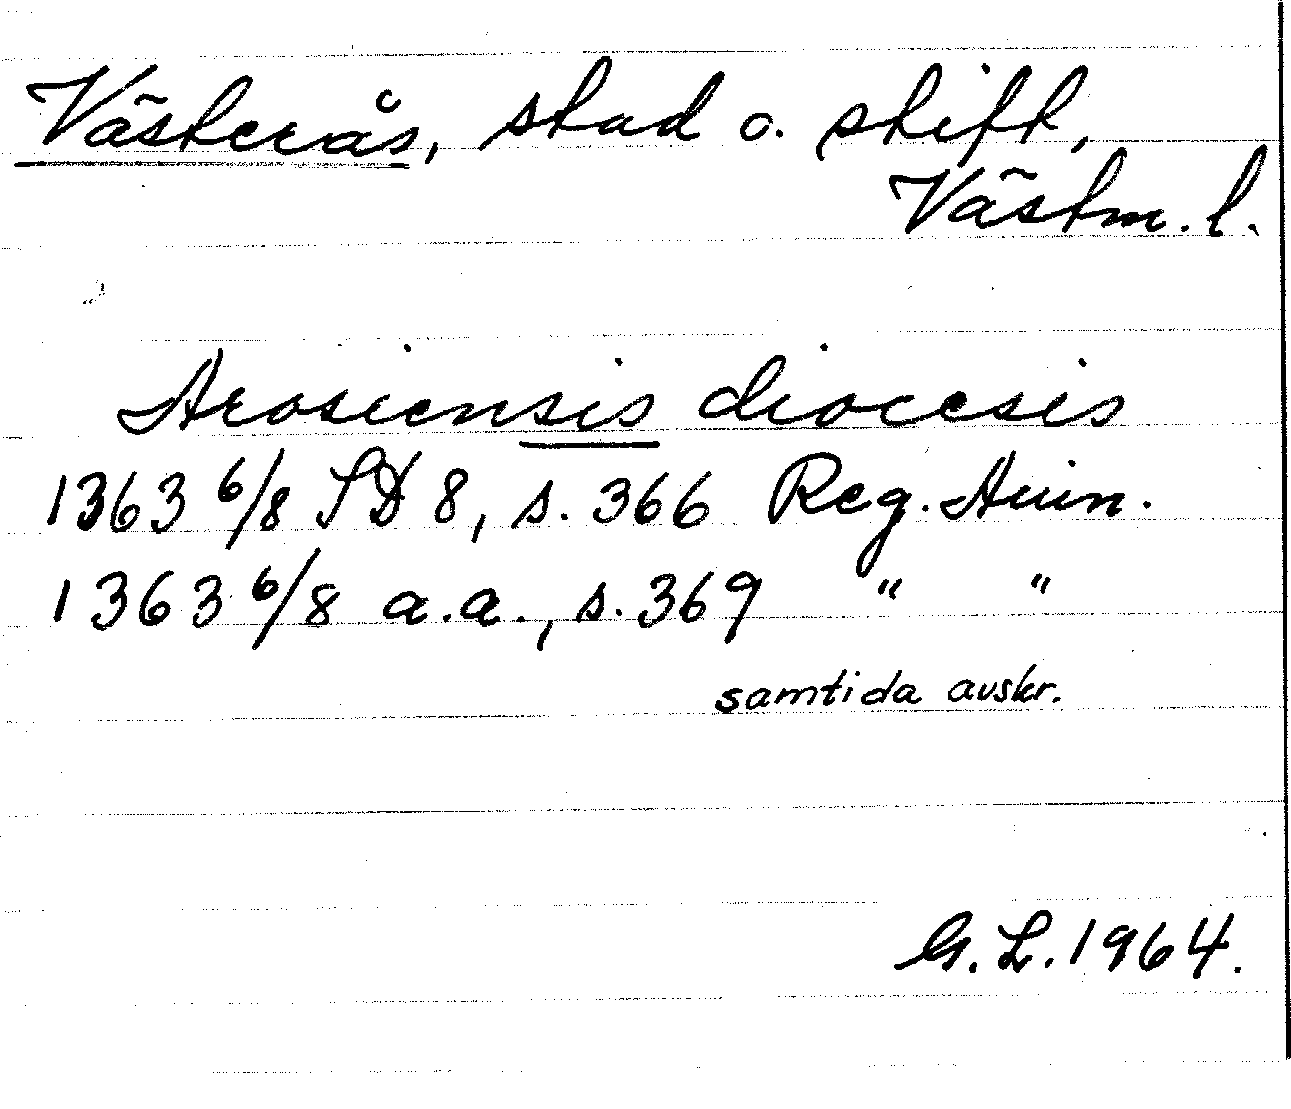 Västerås, stad o. stift,
Västm. l.
Arosiensis diocesis
1363 6/8 SD 8, s. 366 Reg. Avin.
1363 6/8 a.a., s. 369 " "
samtida avskr.
G. L. 1964.